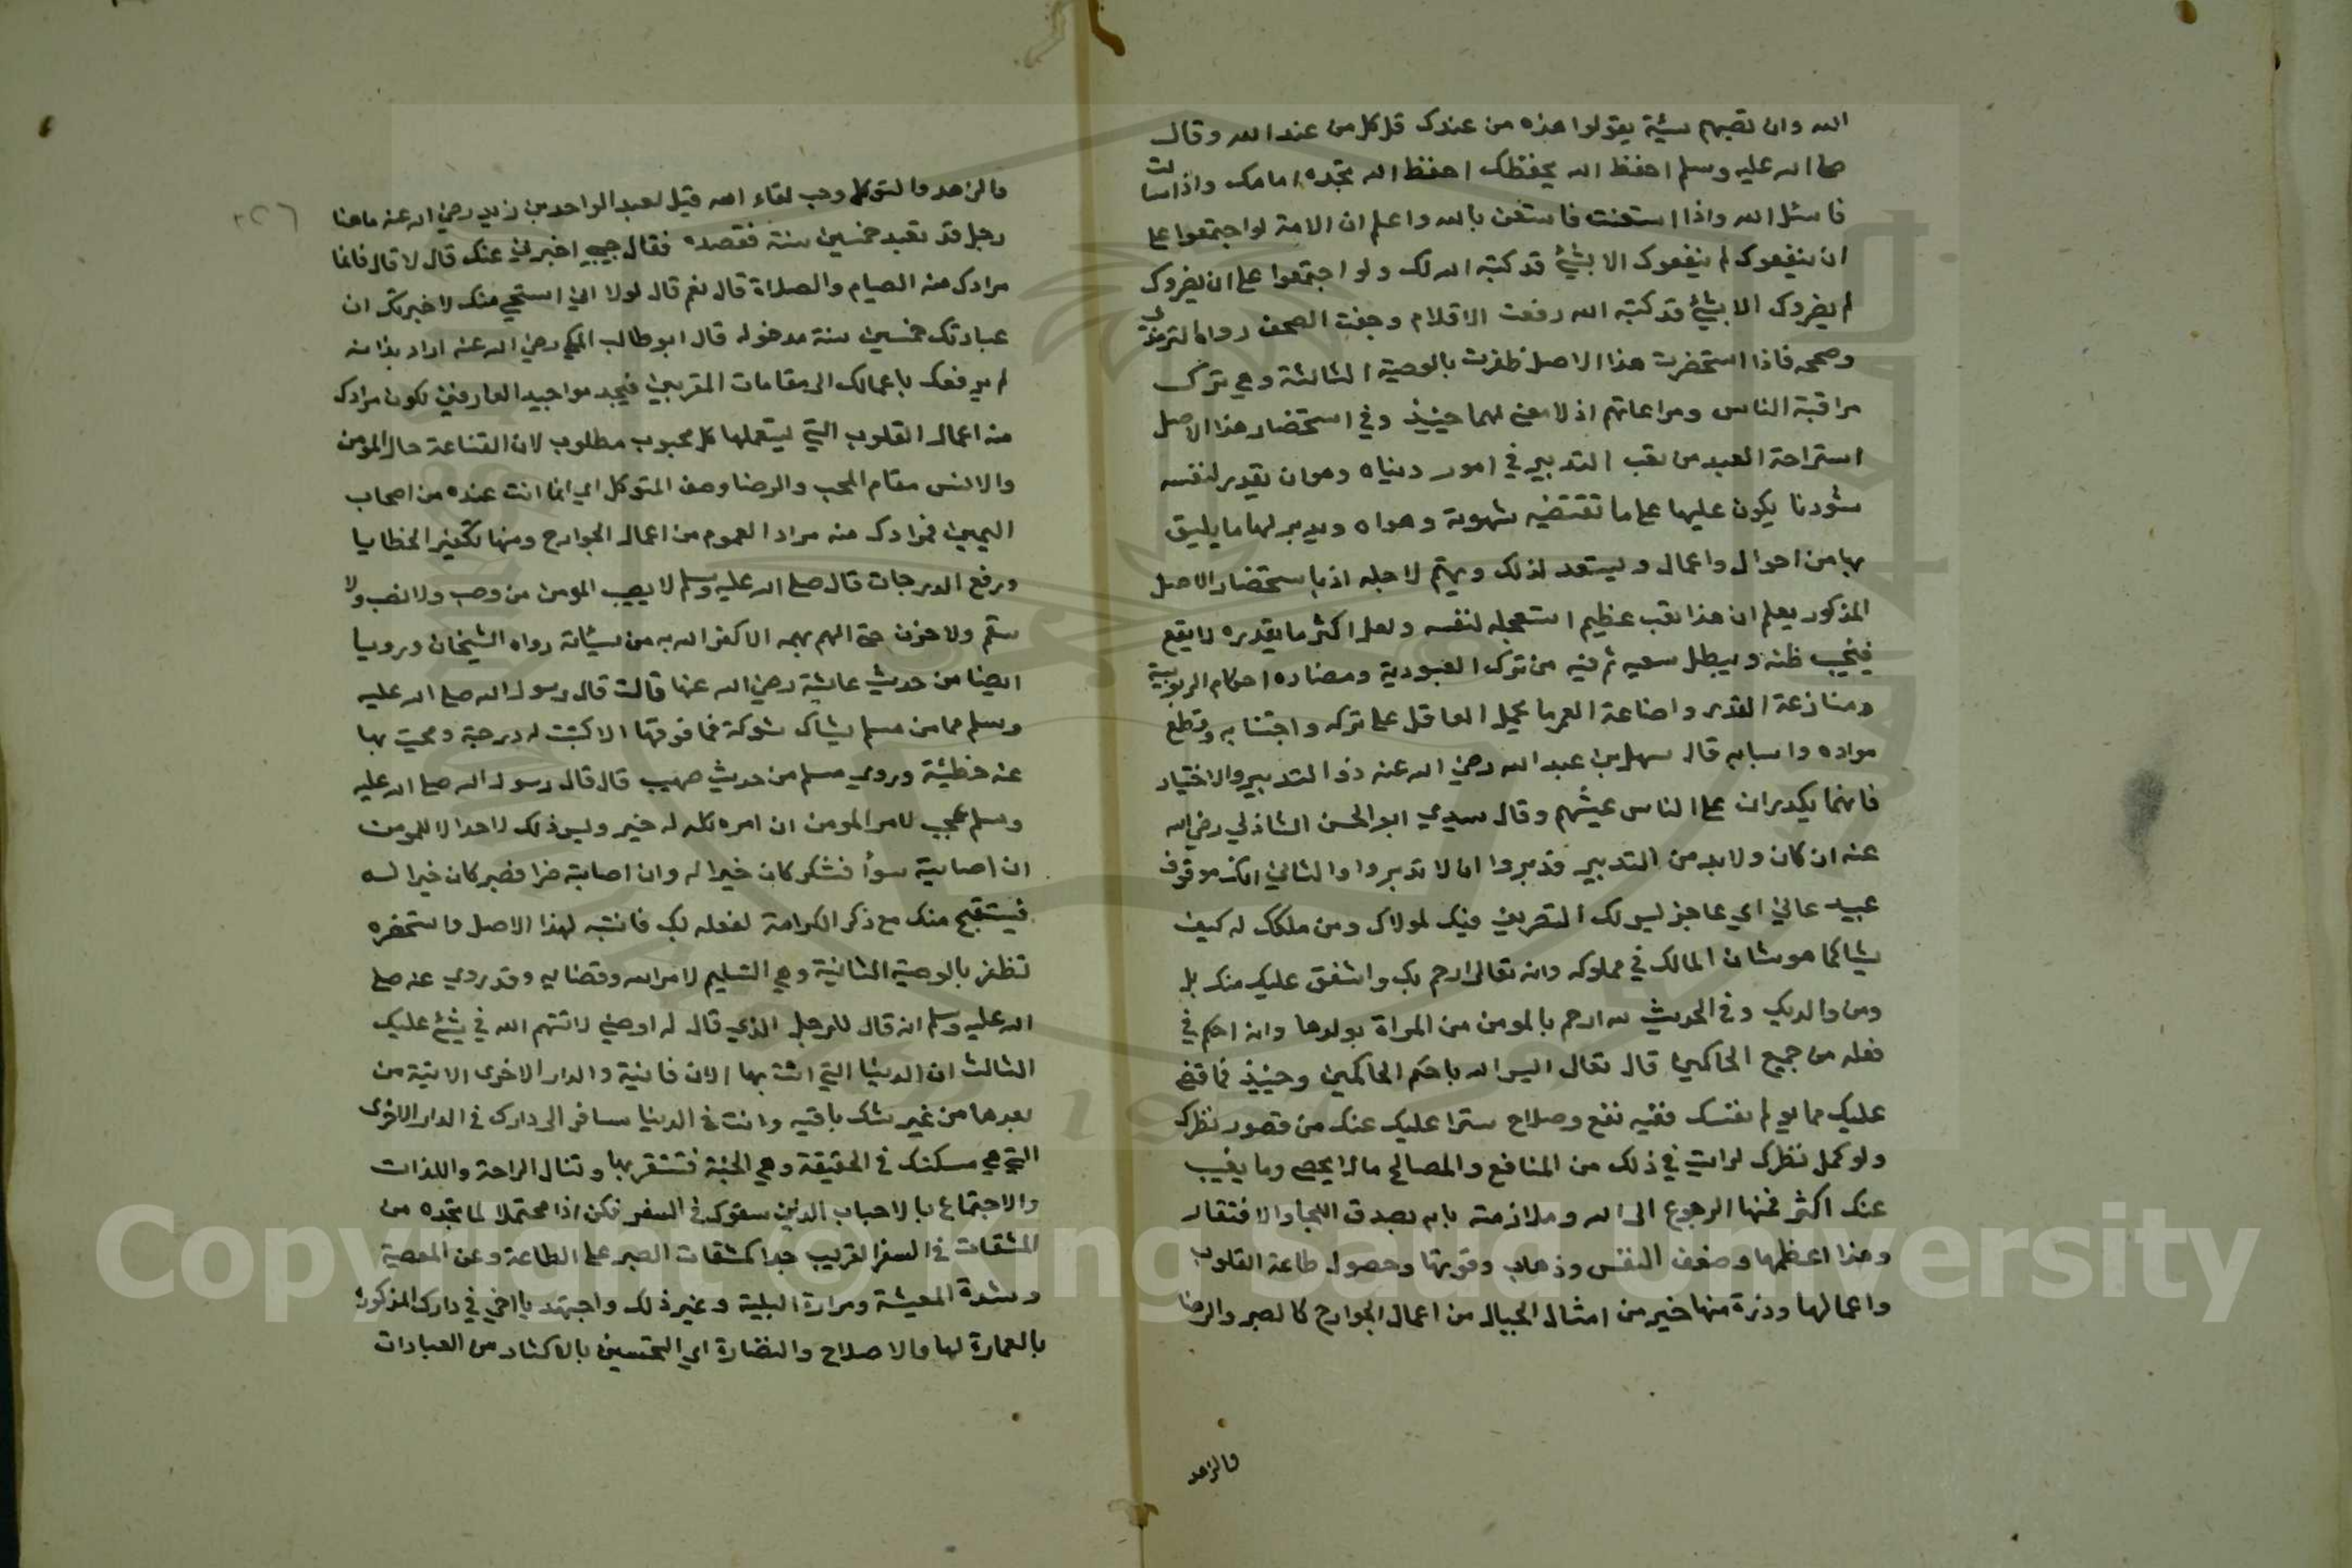 الله وان تصبهم سيئة يقولوا هذه من عندك قل كل من عند الله وقال
صلى الله عليه وسلم احفظ الله يحفظك احفظ الله تجده امامك واذا سالت
فاسئل الله واذا استعنت فاستعن بالله واعلم ان الامة لو اجتمعوا على
ان ينفعوك لم ينفعوك الا بشيئ قد كتبه الله لك ولو اجتمعوا على ان يضروك
لم يضروك الا بشيئ قد كتبه الله رفعت الاقلام وجفت الصحف رواه الترمذي
وصححه فاذا استحضرت هذا الاصل ظفرت بالوصية الثالثة وهي ترك
مراقبة الناس ومراعاتهم اذ لا معنى لهما حينيذ وفي استحضار هذا الاصل
استراحة العبد من تعب التدبير في امور دنياه وهو ان يقدر لنفسه
شؤونا يكون عليها على ما تقتضيه شهوته وهواه ويدبر لها ما يليق
بها من احوال واعمال ويستعد لذلك ويهتم لاجله اذ باستحضار الاصل
المذكور يعلم ان هذا تعب عظيم استعجله لنفسه ولعل اكثر ما يقدره لا يقع
فيخيب ظنه ويبطل سعيه ثم فيه من ترك العبودية ومضادة احكام الربوبية
ومنازعة القدر واضاعة العمر ما يحمل العاقل على تركه واجتنابه وقطع
مواده واسبابه قال سهل بن عبد الله رضي الله عنه ذروا التدبير والاختيار
فانهما يكدران على الناس عيشهم وقال سيدي ابو الحسن الشاذلي رضي الله
عنه ان كان ولا بد من التدبير فدبروا ان لا تدبروا والثاني انك مرقوق
عبيد عاني اي عاجز ليس لك التصريف فيك لمولاك ومن ملكك له كيف
يشا كما هو شان المالك في مملوكه وانه تعالى ارحم بك واشفق عليك منك بل
ومن والديك وفي الحديث لله ارحم بالمومن من المراة بولدها وانه احكم في
فعله من جميع الحاكمين قال تعالى اليس الله باحكم الحاكمين وحينيذ فما قضى
عليك مما يولم نفسك ففيه نفع وصلاح سترا عليك عنك من قصور نظرك
ولو كمل نظرك لرايت في ذلك من المنافع والمصالح ما لا يحصى وما يغيب
عنك اكثر فمنها الرجوع الى الله وملازمة بابه بصدق اللجا والافتقار
وهذا اعظمها وضعف النفس وذهاب وقوتها وحصول طاعة القلوب
واعمالها وذرة منها خير من امثال الجبال من اعمال الجوارح كالصبر والرضا
والزهد
٢٢٦
والزهد والتوكل وحب لقاء الله قيل لعبد الواحد بن زيد رضي الله عنه ماهنا
رجل قد تعبد خمسين سنة فقصده فقال حبيبي اخبرني عنك قال لا قال فانما
مرادك منه الصيام والصلاة قال نعم قال لولا اني استحي منك لاخبرتك ان
عبادتك خمسين سنة مدخوله قال ابو طالب المكي رضي الله عنه اراد بذا انه
لم يرفعك باعمالك الى مقامات المقربين فيجد مواجيد العارفين لكون مرادك
منه اعمال القلوب التي يستعملها كل محبوب مطلوب لان القناعة حال المومن
والانس مقام المحب والرضا وصف المتوكل اي انما انت عنده من اصحاب
اليمين فمرادك منه مراد العموم من اعمال الجوارح ومنها تكفير الخطايا
ورفع الدرجات قال صلى الله عليه وسلم لا يصيب المومن من وصب ولا نصب ولا
سقم ولا حزن حتى الهم يهمه الا كفر الله به من سيئاته رواه الشيخان ورويا
ايضا من حديث عايشة رضي الله عنها قالت قال رسول الله صلى الله عليه
وسلم ما من مسلم يشاك شوكة فما فوقها الا كتبت له درجة ومحيت بها
عنه خطيئة وروى مسلم من حديث صهيب قال قال رسول الله صلى الله عليه
وسلم عجب لامر المومن ان امره كله له خير وليس ذلك لاحد الا للمومن
ان اصابته سرأ فشكر كان خيرا له وان اصابته ضرا فصبر كان خيرا له
فيستقبح منك مع ذكر الكرامة لفعله بك فانتبه لهذا الاصل واستحضره
تظفر بالوصية الثانية وهي التسليم لامر الله وقضايه وقد روي عنه صلى
الله عليه وسلم انه قال للرجل الذي قال له اوصني لا تتهم الله في شئ عليك
الثالث ان الدنيا التي انت بها الان فانية والدار الاخرى الاتية من
بعدها من غير شك باقيه وانت في الدنيا مسافر الى دارك في الدار الاخرى
التي هي مسكنك في الحقيقة وهي الجنة فتستقر بها وتنال الراحة واللذات
والاجتماع بالاحباب الذين سبقوك في السفر فكن اذا محتملا لما تجده من
المشقات في السفر القريب جدا كمشقات الصبر على الطاعة وعن المعصية
وشدة المعيشة ومرارة البلية وغير ذلك واجتهد يا اخي في دارك المذكورة
بالعمارة لها والاصلاح والنضارة اي التحسين بالاكثار من العبادات
Copyright © King Saud University